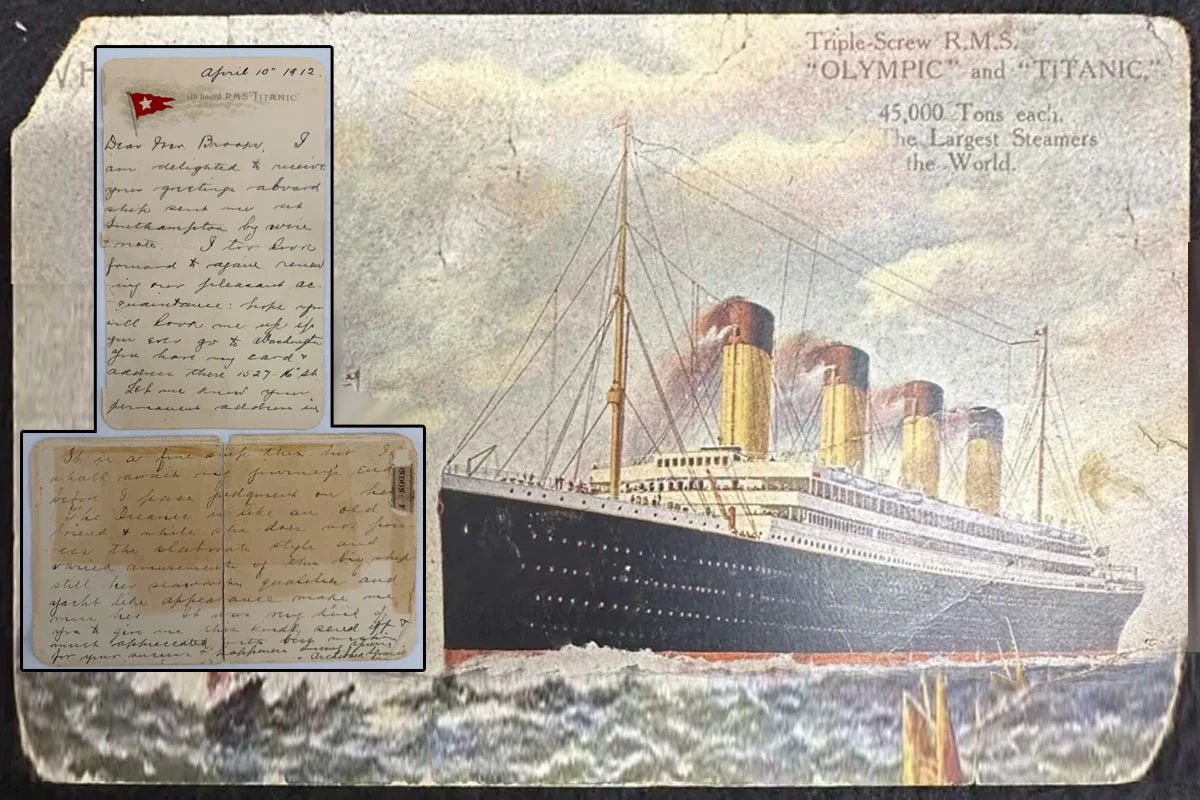 April 10" 1912.
On board R.M.S. "TITANIC".
Dear Mr. I
am delighted to receive
your greetings aboard
ship sent me at
Southampton by wire
& note. I too look
forward to again renew
ing our pleasant ac
quaintance: hope you
will look me up if
you ever go to Washington
You have my card &
address there 1527-K" St.
Let me know your
permanent address in
It is a fine ship this but I
shall await my journeys end
before I pass judgment on her.
The Oceanic is like an old
friend & while she does not poss-
ess the elaborate style and
varied amusements of this big ship
still her seaworthy qualities and
yacht like appearance make me
miss her. It was very kind of
you to give me this kindly send off &
much appreciated with best wishes
for your success & happiness
Archibald Gracie
Triple-Screw R.M.S.
"OLYMPIC" and "TITANIC,"
45,000 Tons each.
The Largest Steamers
the World.